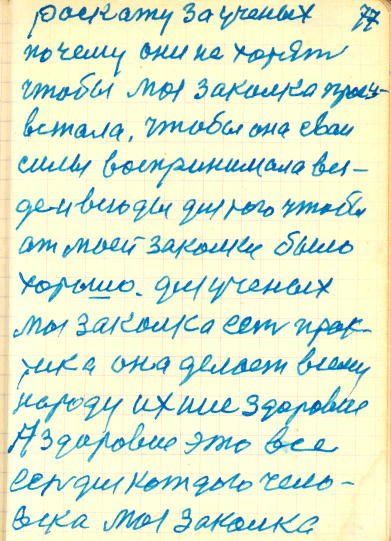 раскажу за ученых 77
почему они не хотят
чтобы моя закалка процв-
встала, чтобы она свои
силы воспринимала вез-
де и всюды для того чтобы
от моей закалки было
хорошо. для ученых
моя закалка есть прак-
тика она делает всему
народу ихние здоровие
А здоровие это все
есть для каждого чело-
века моя закалка